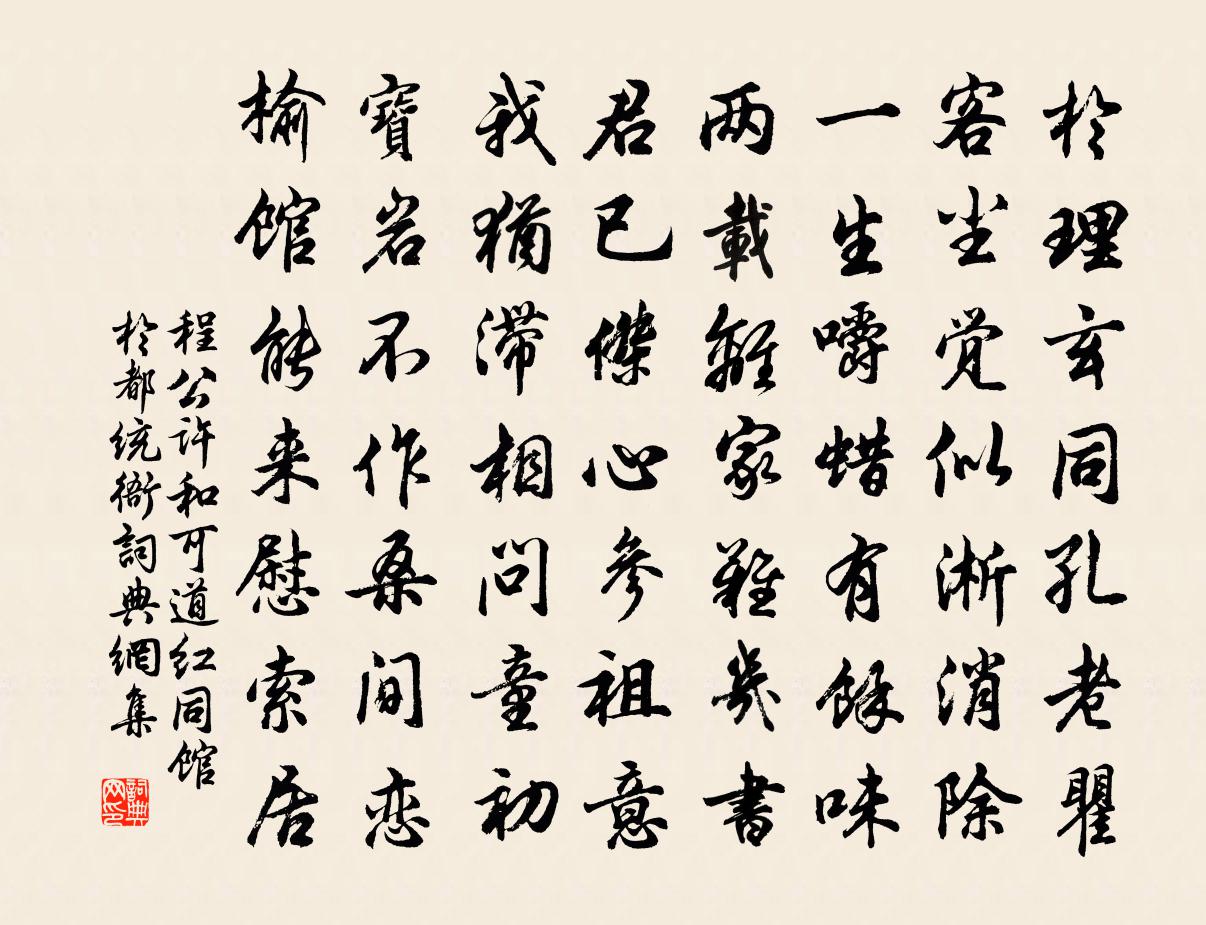 於理玄同孔老瞿
客尘觉似淅消除
一生嚼蜡有馀味
两載離家難幾書
君已傑心參祖意
我猶滞相问童初
寶岩不作桑间恋
榆馆能来慰索居
程公许和可道红同馆
於都统衙詞典網集
詞典
网印